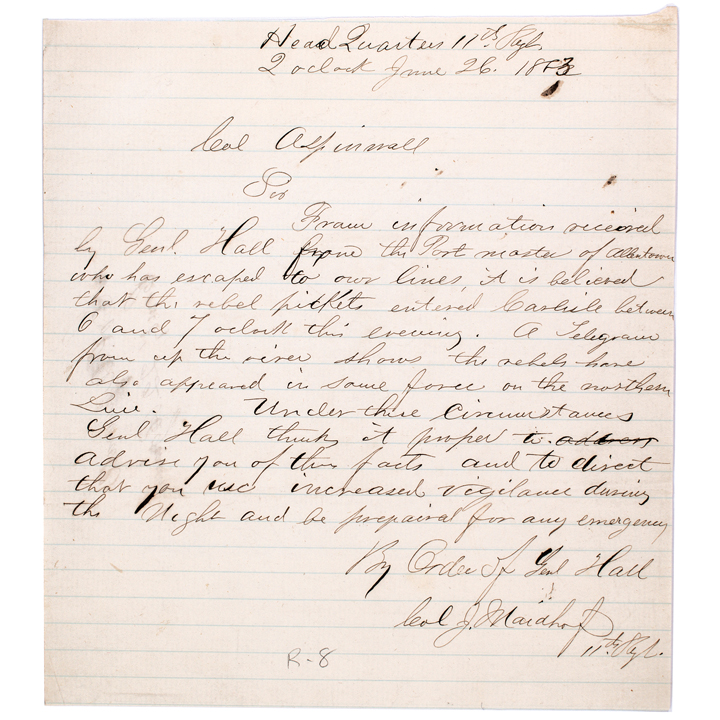 Head Quarters 11th Regt.
2 oclock June 26. 1863
Col Aspinwall
Sir
From information received
by Genl. Hall from the Post master of Allentown
who has escaped to our lines, it is believed
that the rebel pickets entered Carlisle between
6 and 7 oclock this evening. A Telegram
from up the river shows the rebels have
also appeared in some force on the northern
Line. Under these Circumstances
Genl Hall thinks it proper to address
advise you of these facts and to direct
that you use increased vigilance during
the Night and be prepaired for any emergency
By Order of Genl Hall
Col J. Maidhof
11th Regt.
R-8